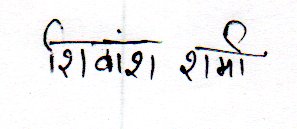 शिवांश शर्मा